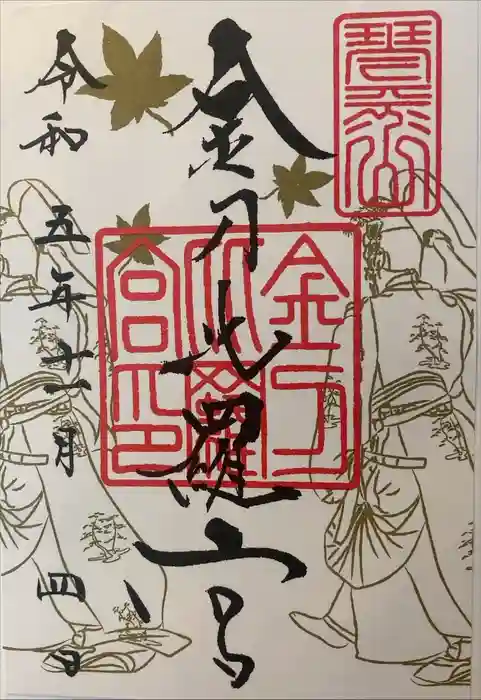 琴平山
金刀比羅宮
金刀
比羅
宮印
令和五年十一月四日